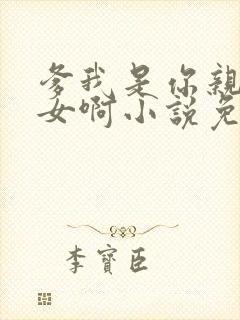 爹我是你親
女啊小説免
李寶臣